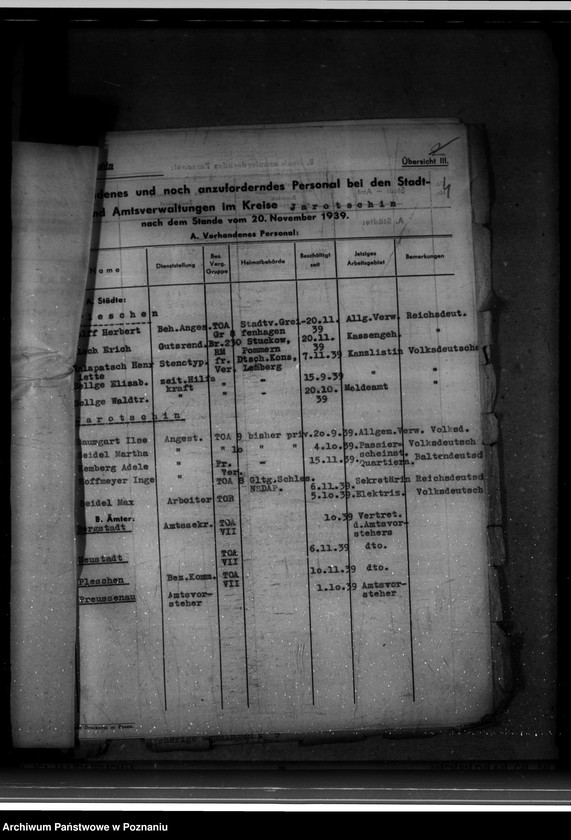 Übersicht III.
denes und noch anzuforderndes Personal bei den Stadt-
nd Amtsverwaltungen im Kreise Jarotschin
nach dem Stande vom 20. November 1939.
A. Vorhandenes Personal:
Name Dienststellung Bes. Verg. Gruppe Heimatbehörde Beschäftigt seit Jetziges Arbeitsgebiet Bemerkungen
A. Städte:
eschen
ff Herbert Beh.Anges. TOA Stadtv.Grei- 20.11. Allg.Verw. Reichsdeut.
Gr 8 fenhagen 39
ch Erich Gutsrend. Br.230 Stuckow, 20.11. Kassengeh. "
RM Pommern 39
lapatsch Henr Stenotyp. fr. Dtsch.Kons, 7.11.39 Kanzlistin Volksdeutsch
iette Ver. Lemberg
ellge Elisab. zeit.Hilfs " " 15.9.39 " "
kraft
ellge Waldtr. " " " 20.10. Meldeamt "
39
Jarotschin
Baumgart Ilse Angest. TOA 9 bisher priv. 20.9.39. Allgem.Verw. Volksd.
Seidel Martha " " 10 " " 4.10.39. Passier- Volksdeutsch
scheinst.
emberg Adele " Pr. 15.11.39. Quartiera. Baltendeutsd
Ver.
Hoffmeyer Inge " TOA 8 Gltg.Schles. Sekretärin Reichsdeutsd
NSDAP. 6.11.39.
Seidel Max Arbeiter TOB 5.10.39. Elektris. Volksdeutsch
B. Ämter:
Bergstadt Amtssekr. TOA 10.39 Vertret.
VII d.Amtsvor-
stehers
Neustadt TOA 6.11.39 dto.
VII
Pleschen Bez.Komm. TOA 10.11.39 dto.
VII
Preussenau Amtsvor- 1.10.39 Amtsvor-
steher steher
Archiwum Państwowe w Poznaniu